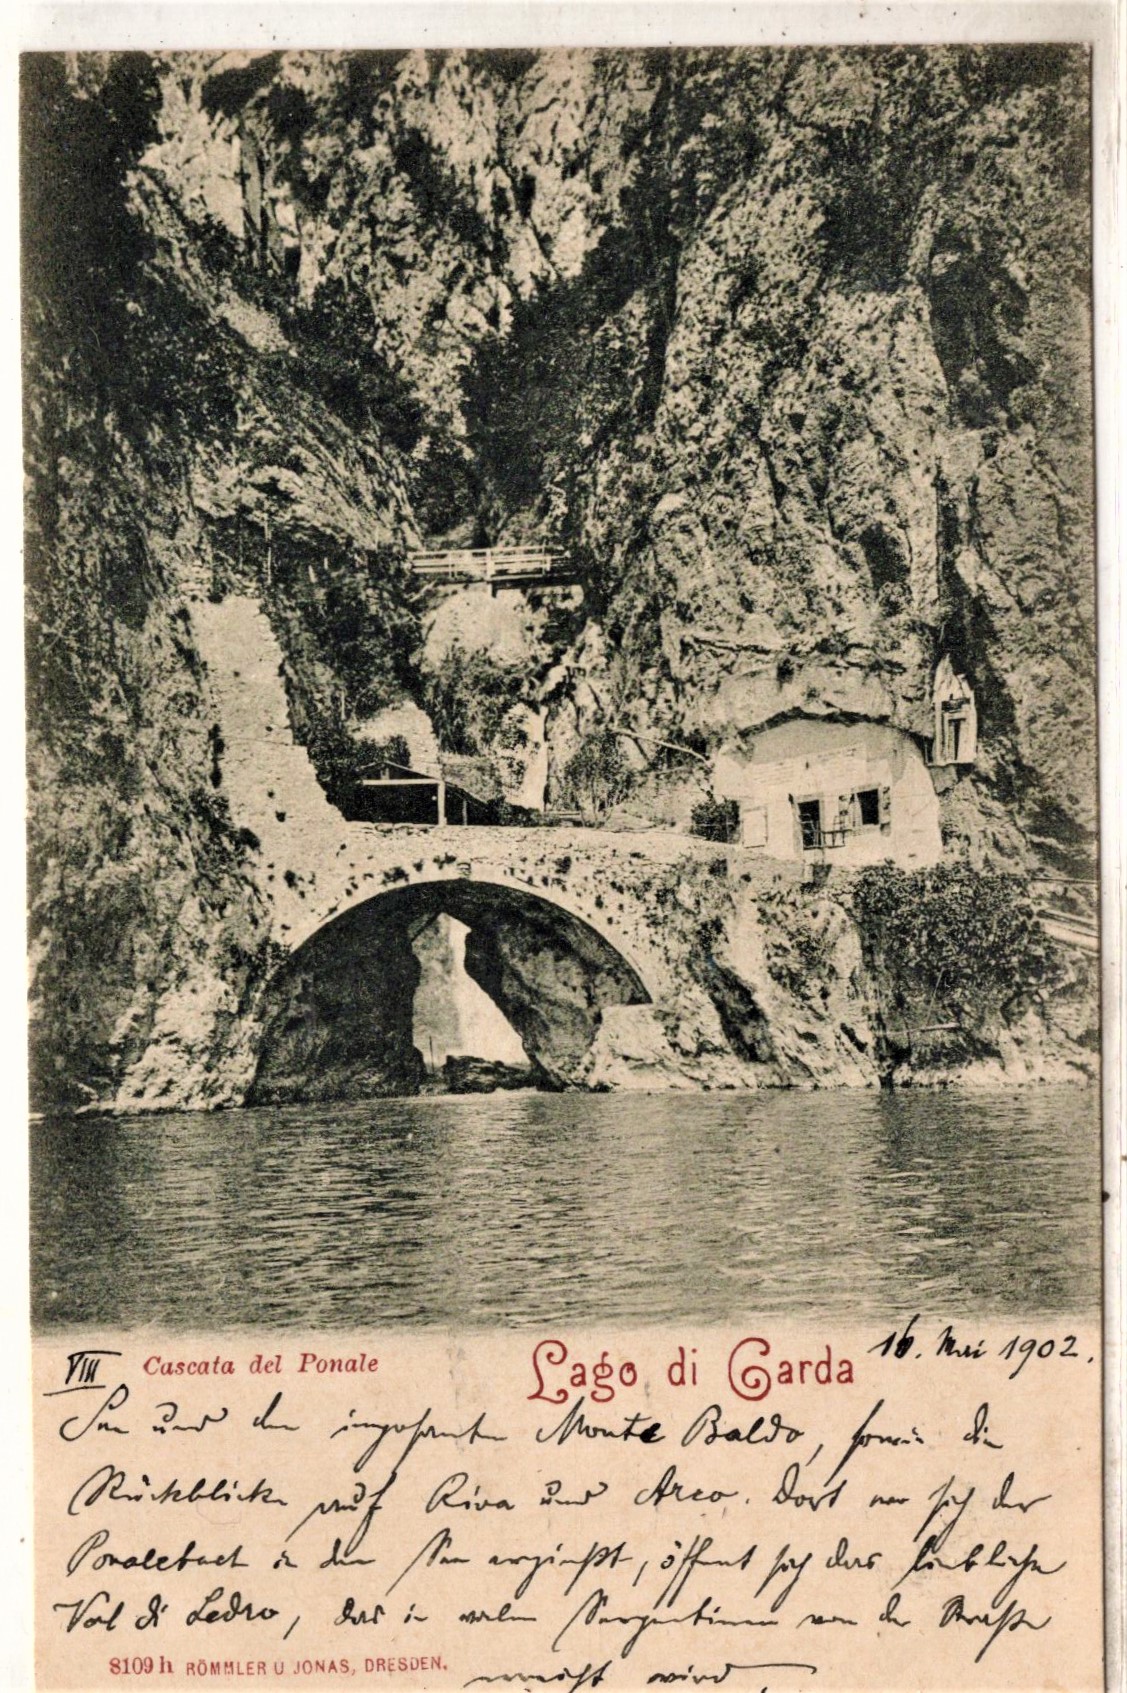 VIII Cascata del Ponale Lago di Garda 16. Mai 1902.
See und den imposanten Monte Baldo, sowie die
Rückblicke auf Riva und Arco. Dort wo sich der
Ponalebach in den See ergießt, öffnet sich das liebliche
Val di Ledro, das in vielen Serpentinen von der Straße
erreicht wird.
8109 h RÖMMLER U JONAS, DRESDEN.